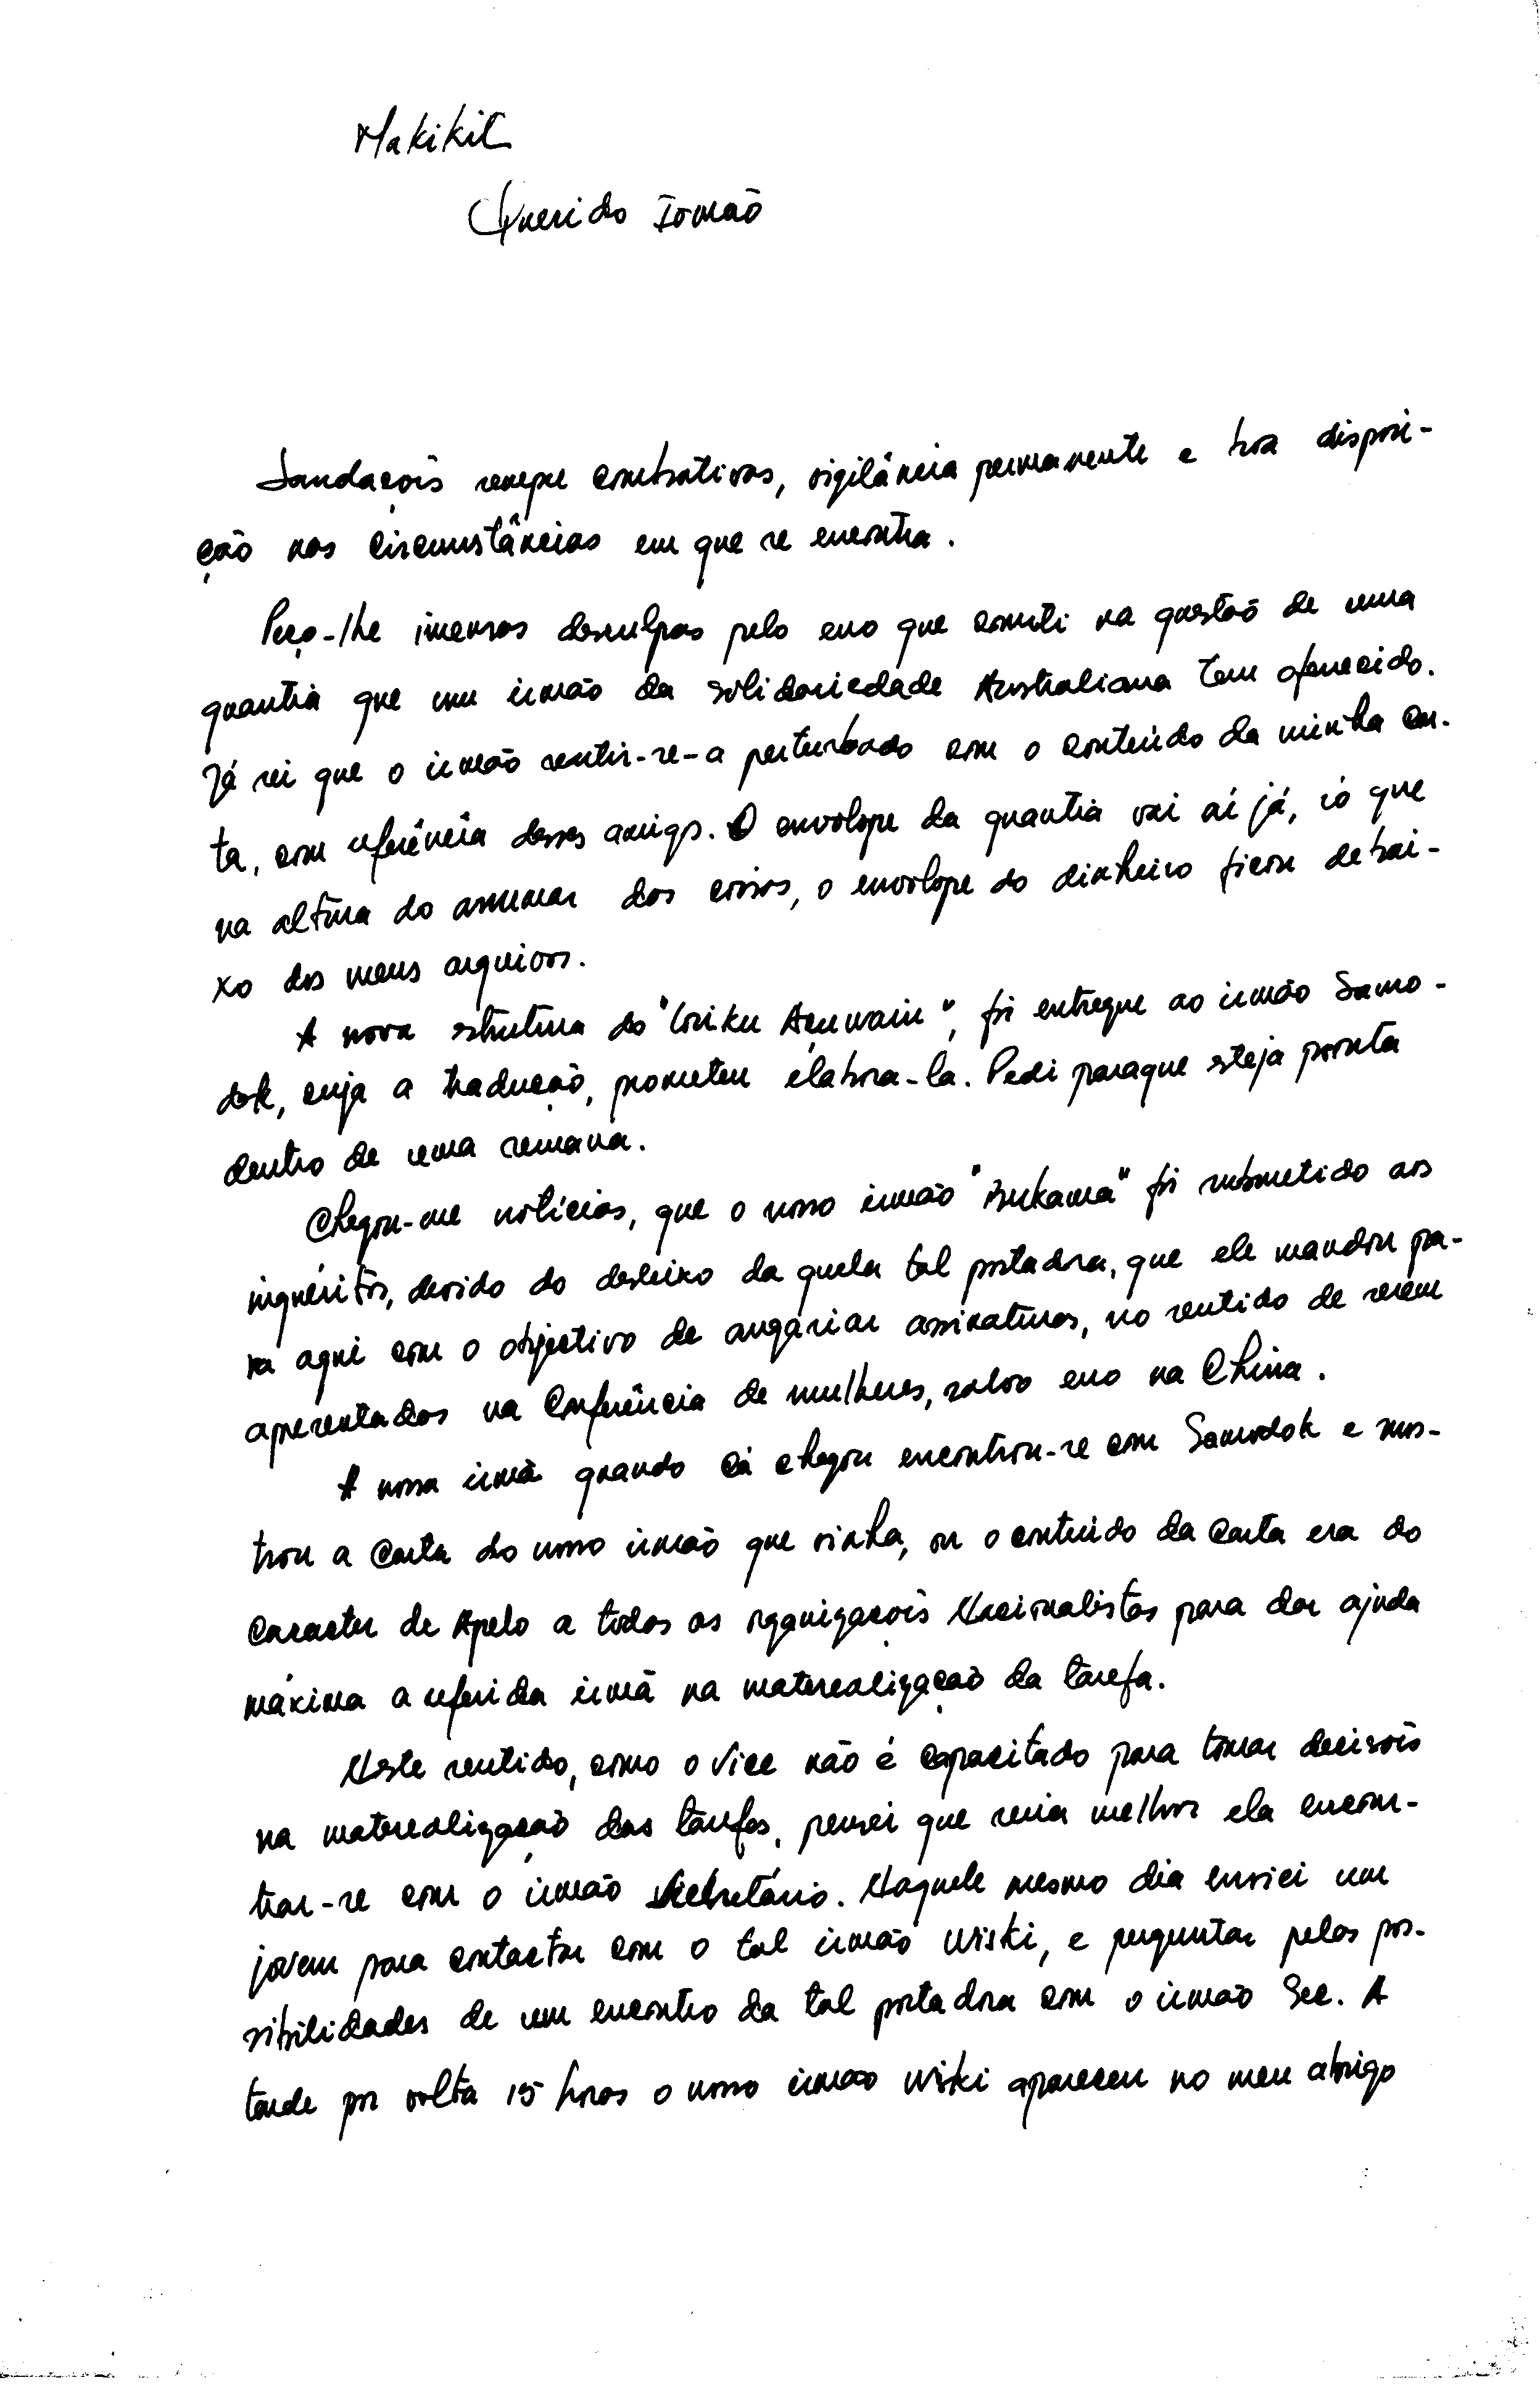 Makikit
Querido Irmão
Saudaçois sempre combativas, vigilância permanente e boa disposi-
ção nas circunstâncias em que se encontra.
Peço-lhe imensas desculpas pelo erro que cometi na questaõ de uma
quantia que um irmão da solidariedade Australiana tem oferecido.
Já sei que o irmão sentir-se-a perturbado com o conteúdo da minha car-
ta, com referência desses amigos. O envolope da quantia vai aí já, só que
na altura do arrumar das coisas, o envolope do dinheiro ficou debai-
xo dos meus arquivos.
A nova estrutura do "Loriku Açuwain", foi entregue ao irmão Samo-
dok, cuja a tradução, prometeu élabora-la. Pedi paraque esteja pronta
dentro de uma semana.
Chegou-me notícias, que o nosso irmão "Bukamá" foi submetido aos
inquéritos, devido do desleixo da quela tal portadora, que ele mandou pa-
ra aqui com o objectivo de angariar assinaturas, no sentido de serem
apresentadas na Conferência de mulheres, salvo erro na China.
A nossa irmã quando cá chegou encontrou-se com Samodok e mos-
trou a carta do nosso irmão que vinha, ou o conteúdo da carta era do
caracter de Apelo a todas as organizaçois Nacionalistas para dar ajuda
máxima a referida irmã na materealizaçaõ da tarefa.
Neste sentido, como o Vice não é capacitado para tomar decisois
na materealização das tarefas, pensei que seria melhor ela encon-
trar-se com o irmão Secretário. Naquele mesmo dia enviei um
jovem para contactar com o tal irmão Wiski, e perguntar pelas pos-
sibilidades de um encontro da tal portadora com o irmão Sec. A
tarde por volta 15 horas o nosso irmao Wiski apareceu no meu abrigo